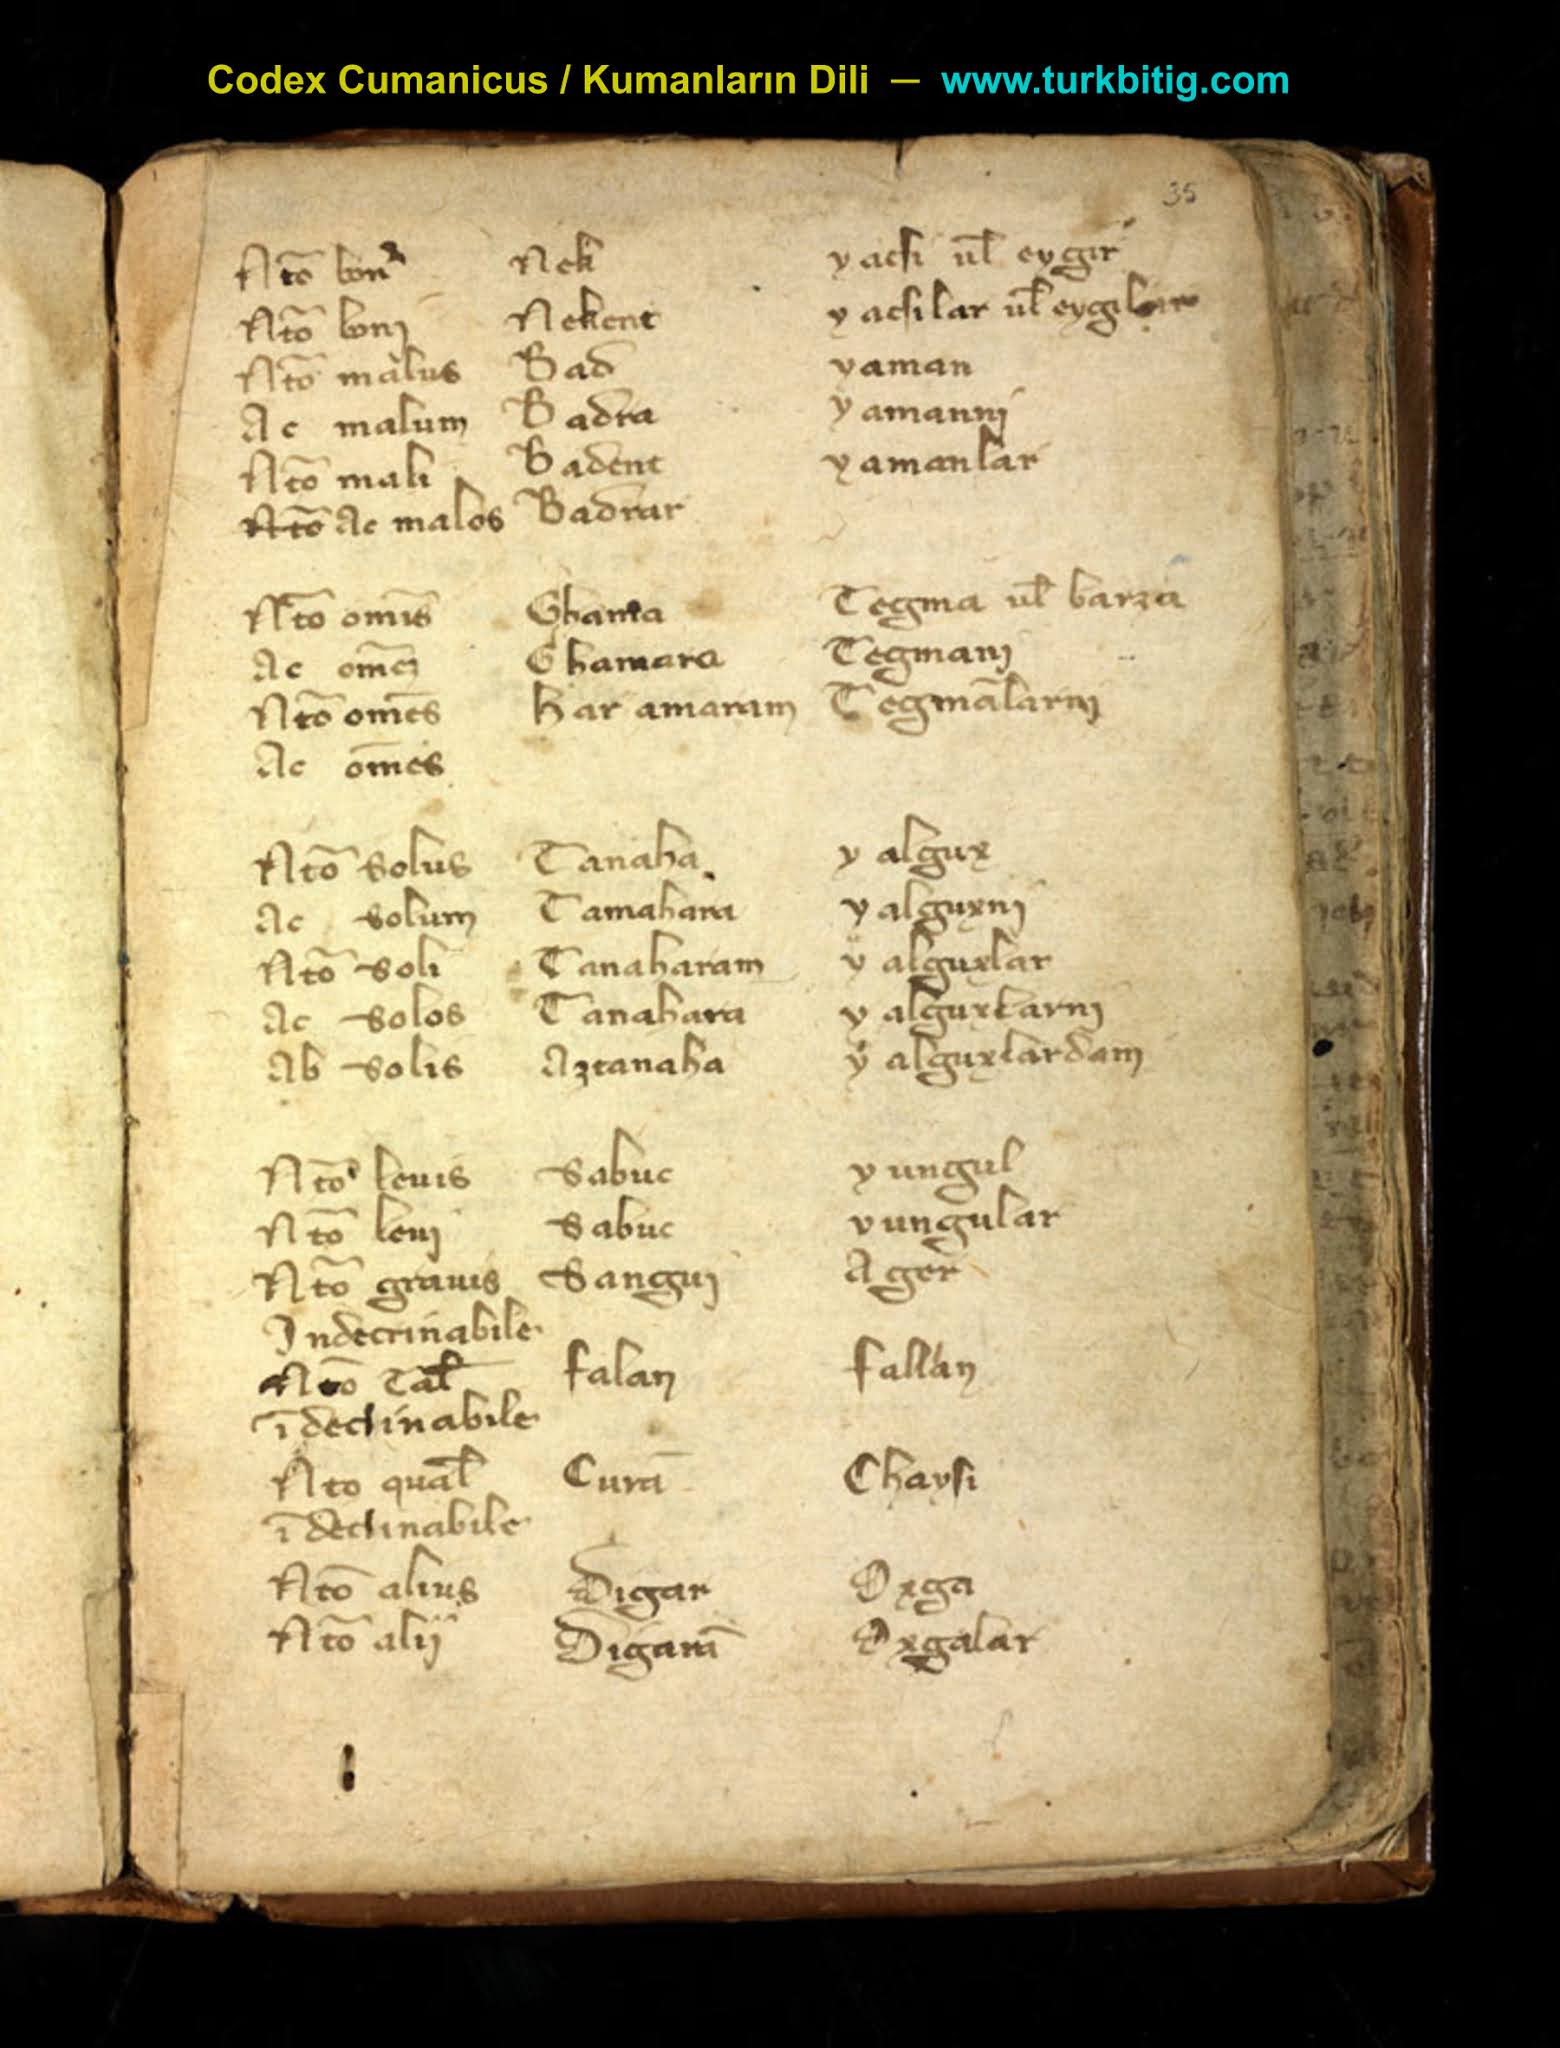 Codex Cumanicus / Kumanların Dili — www.turkbitig.com
35
Ntō bonꝰ Nek yacsi ul̄ eygir
Ntō boni Nekent yacsilar ul̄ eygilar
Ntō malus Bad yaman
Ac malum Badra yamanni
Ntō mali Badent yamanlar
Ntō Ac malos Badrar
Ntō om̄is Ghama Tegma ul̄ barza
Ac Ghamara Tegmani
Ntō om̄es har amaram Tegmālarni
Ac om̄es
Ntō solus Tanaha yalgux
Ac solum Tamahara yalguxni
Ntō soli Tanaharam yalguxlar
Ac solos Tanahara yalguxlarni
Ab solis Aztanaha yalguxlardam
Ntō leuis Sabuc yungul
Ntō leui Sabuc yungular
Ntō grauis Sangui Ager
Indeclinabile
Ntō Tal̄ falan fallan
īdeclinabile
Nto qual̄ Curā Chaysi
īdeclinabile
Ntō alius Digar Oxga
Ntō alij Digarā Oxgalar